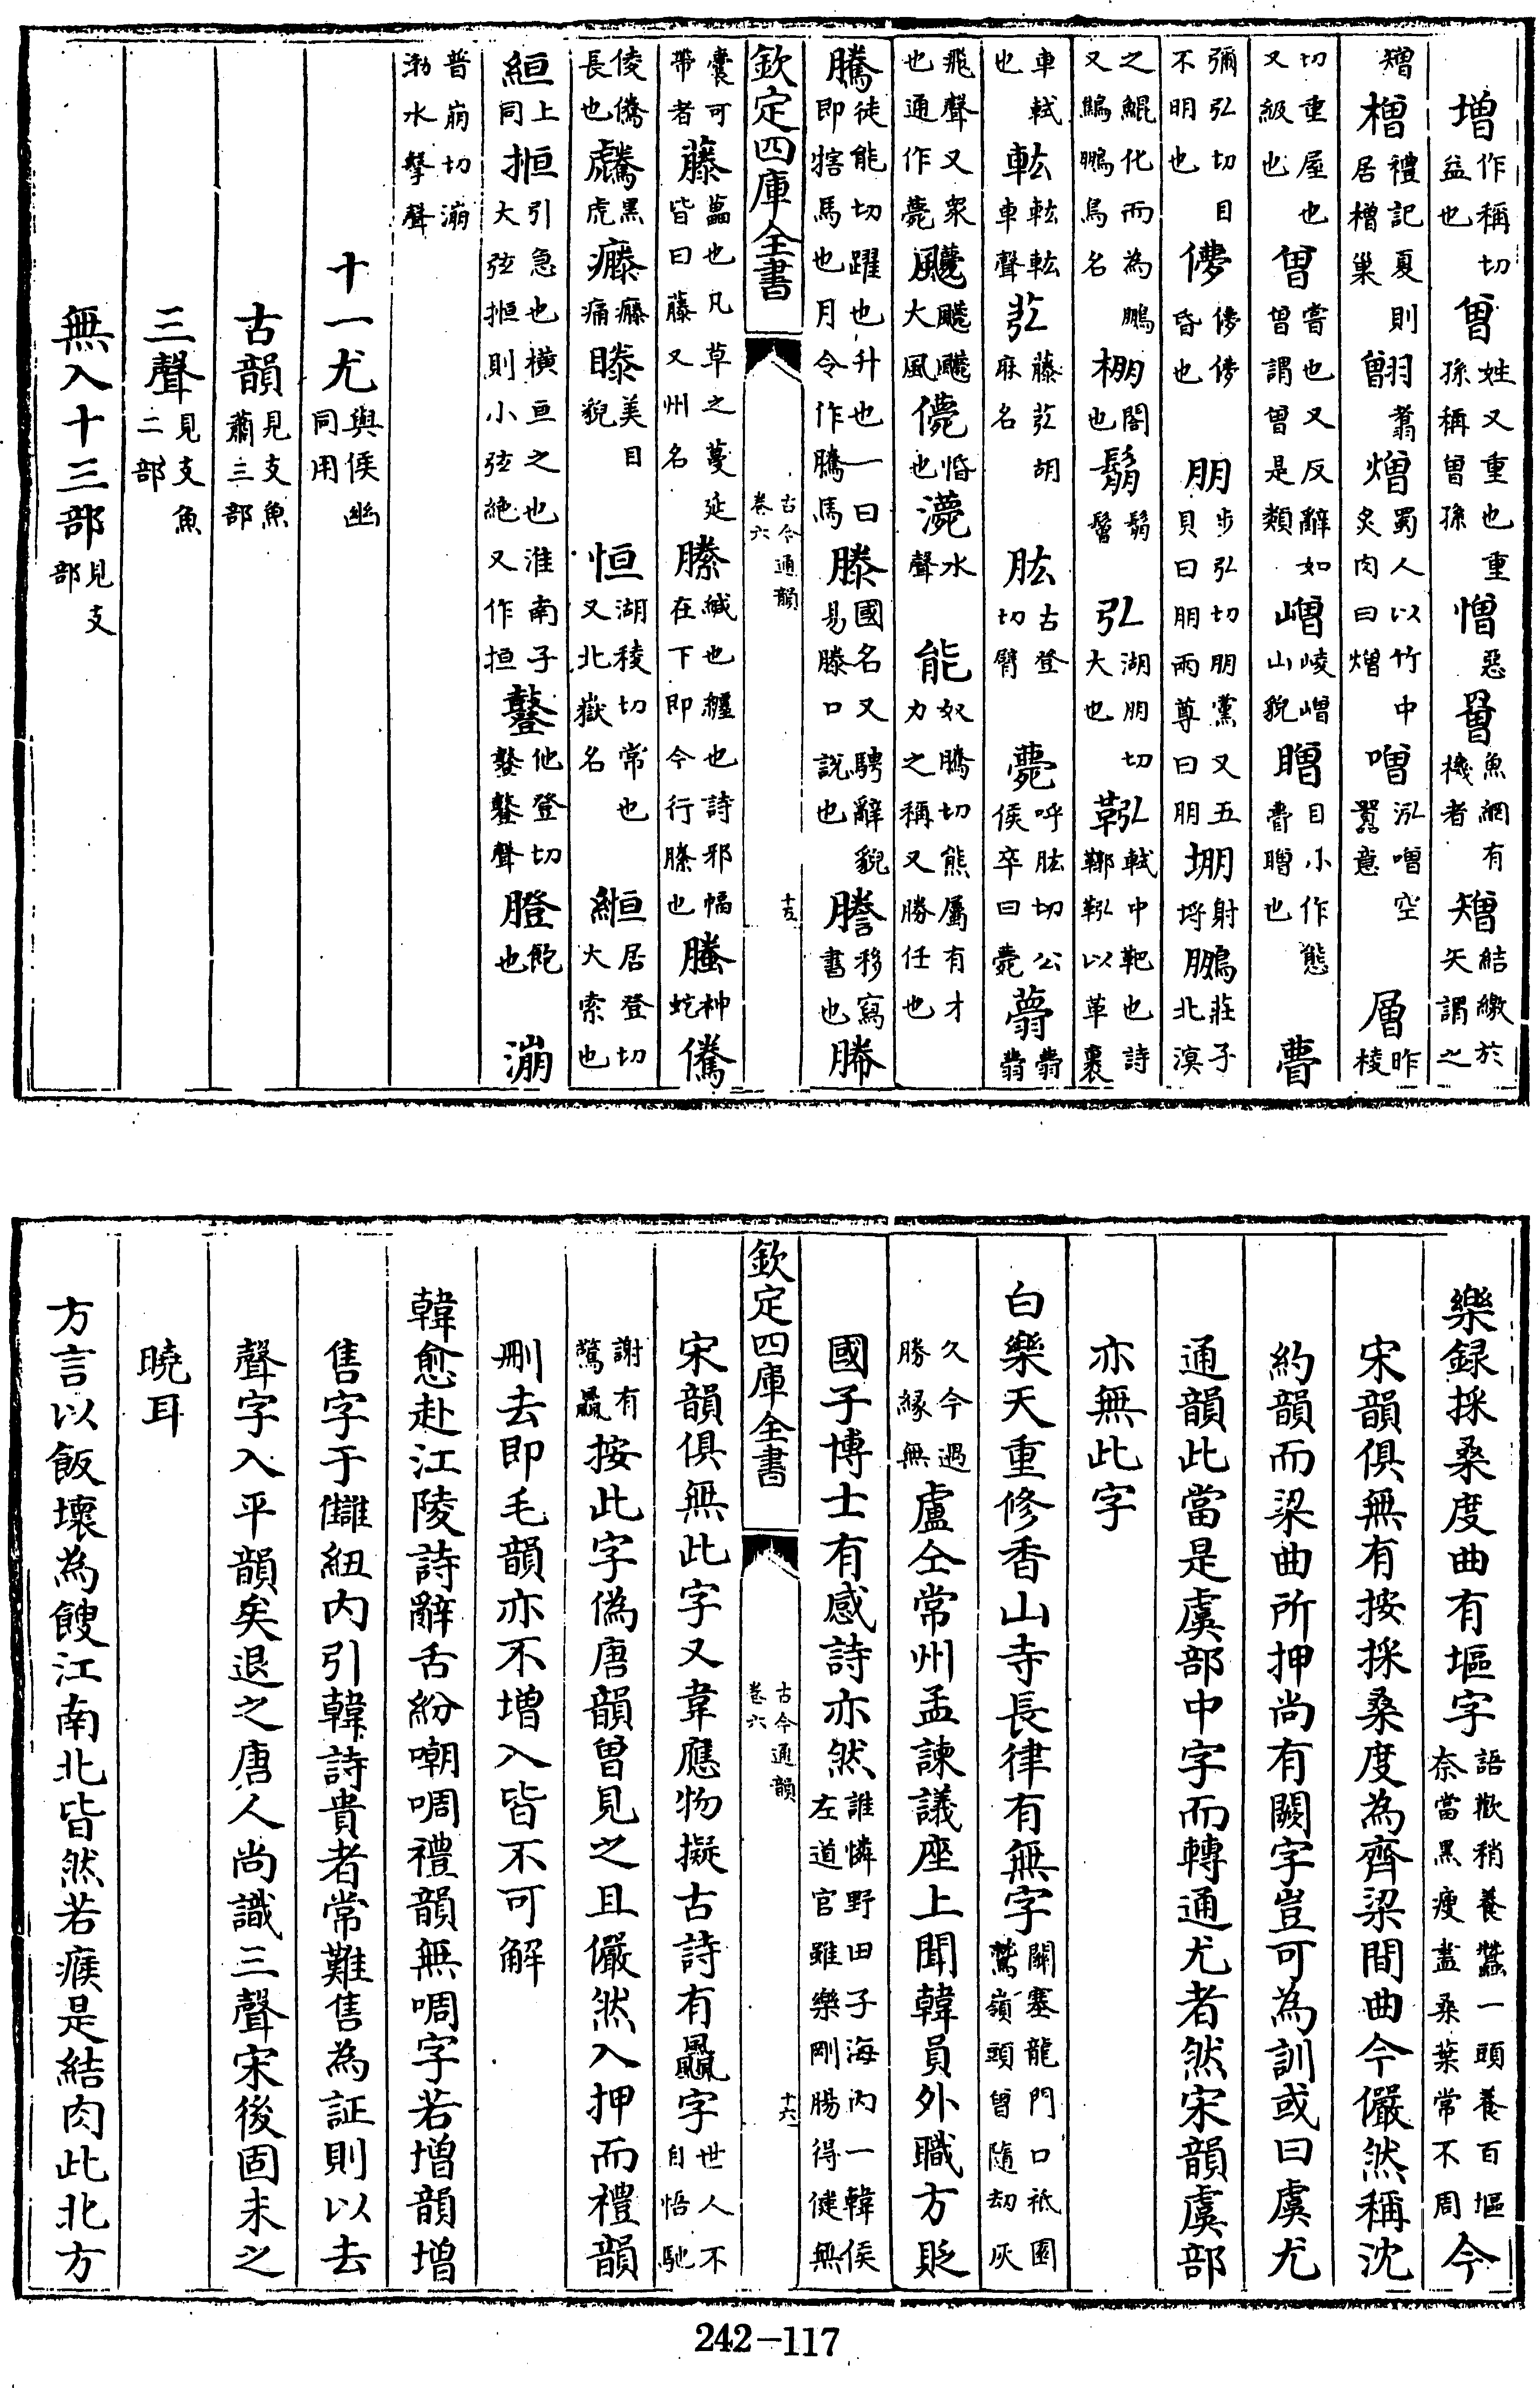 增作稱切益也曾姓又重也重孫稱曾孫憎惡罾魚網有機者矰結繳於矢謂之
矰橧禮記夏則居橧巢䎖翥熷蜀人以竹中炙肉曰熷噌泓噌空嚚意層昨棱
切重屋也又級也曾嘗也又反辭如曾謂曾是類嶒崚嶒山貌矒目小作態瞢矒也瞢
彌弘切目不明也儚儚儚昏也朋步弘切朋黨又五貝曰朋兩尊曰朋堋射埒鵬莊子北溟
之鯤化而為鵬又鯿鵬鳥名棚閣也鬅鬅鬙弘湖朋切大也鞃軾中靶也詩鞹鞃以革裹
車軾也軚軚軚車聲苰藤苰胡麻名肱古登切臂薨呼肱切公侯卒曰薨䒐翡翡
飛聲又衆也通作薨䬝䬝䬝大風儚惛也㵗水聲能奴騰切熊屬有才力之稱又勝任也
騰徒能切躍也升也一曰即犗馬也月令作騰馬滕國名又騁辭貌易滕口說也謄移寫書也幐
欽定四庫全書 古今通韻 卷六 十五
囊可帶者藤藟也凡草之蔓延皆曰藤又州名縢緘也纏也詩邪幅在下即今行縢也螣神蛇儯
倰儯長也䲢黑虎癳癳痛䁬美目貌恒湖稜切常也又北嶽名緪居登切大索也
縆上同搄引急也橫亘之也淮南子大弦搄則小弦絶又作揯鼟他登切鼟鼟聲䠭飽也漰
普崩切漰渤水擊聲
十一尤與侯幽同用
古韻見支魚蕭三部
三聲見支魚二部
無入十三部見支部
樂録採桑度曲有塸字語歡稍養蠶一頭養百塸奈當黑瘦盡桑葉常不周今
宋韻俱無有按採桑度為齊梁間曲今儼然稱沈
約韻而梁曲所押尚有闕字豈可為訓或曰虞尤
通韻此當是虞部中字而轉通尤者然宋韻虞部
亦無此字
白樂天重修香山寺長律有無字闕塞龍門口祇園鷲嶺頭曾隨劫灰
久今遇勝緣無盧仝常州孟諫議座上聞韓員外職方貶
國子博士有感詩亦然誰憐野田子海內一韓侯左道官雖樂剛腸得健無
欽定四庫全書 古今通韻 卷六 十六
宋韻俱無此字又韋應物擬古詩有飍字世人不自悟馳
謝有驚飍按此字僞唐韻曾見之且儼然入押而禮韻
刪去即毛韻亦不增入皆不可解
韓愈赴江陵詩辭舌紛嘲啁禮韻無啁字若增韻增
售字于讎紐内引韓詩貴者常難售為証則以去
聲字入平韻矣退之唐人尚識三聲宋後固未之
曉耳
方言以飯壞為餿江南北皆然若瘊是結肉此北方
242-117